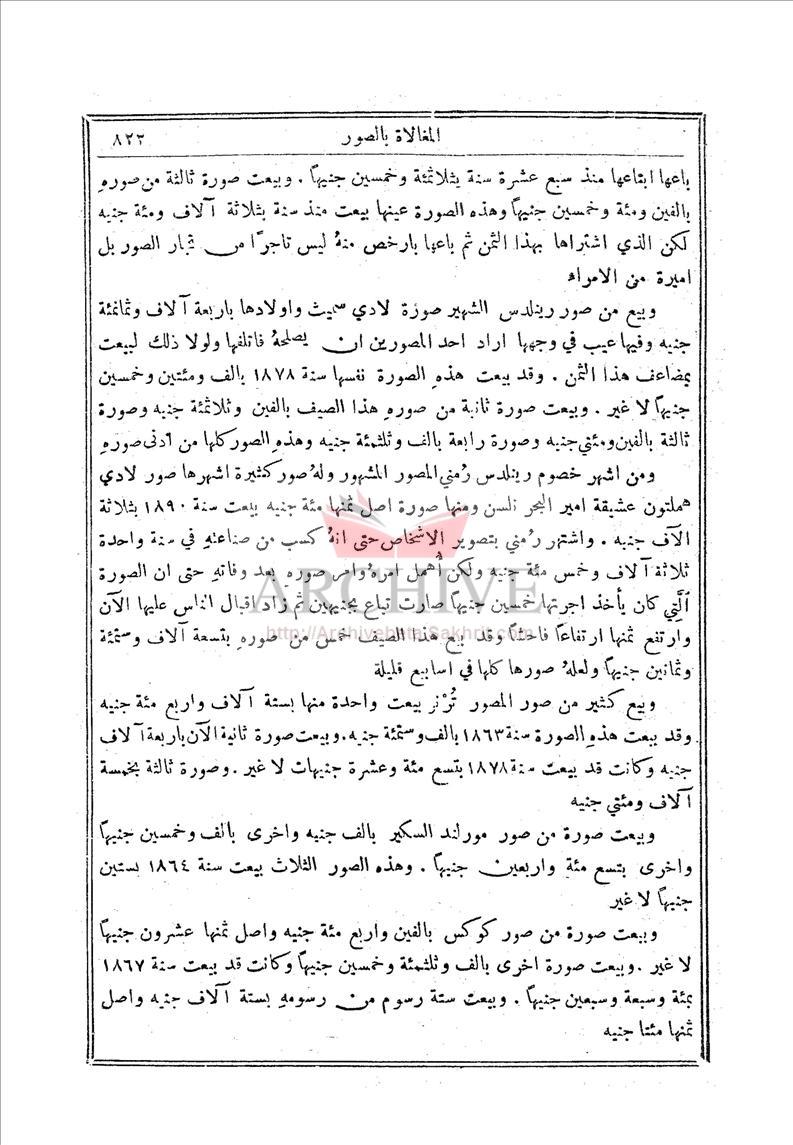 المغالاة بالصور
٨٢٣
باعها ابتاعها منذ سبع عشرة سنة بثلاثمئة وخمسين جنيهاً . وبيعت صورة ثالثة من صورهِ
بالفين ومئة وخمسين جنيهاً وهذه الصورة عينها بيعت منذ سنة بثلاثة آلاف ومئة جنيه
لكن الذي اشتراها بهذا الثمن ثم باعها بارخص منهُ ليس تاجرًا من تجار الصور بل
اميرة من الامراء
وبيع من صور رينلدس الشهير صورة لادي سميث واولادها باربعة آلاف وثمانمئة
جنيه وفيها عيب في وجهها اراد احد المصورين ان يصلحهُ فاتلفها ولولا ذلك لبيعت
بمضاعف هذا الثمن . وقد بيعت هذهِ الصورة نفسها سنة ١٨٧٨ بالف ومئتين وخمسين
جنيهاً لا غير . وبيعت صورة ثانية من صورهِ هذا الصيف بالفين وثلاثمئة جنيه وصورة
ثالثة بالفين ومئتي جنيه وصورة رابعة بالف وثلثمئة جنيه وهذهِ الصور كلها من ادنى صورهِ
ومن اشهر خصوم رينلدس رُمني المصور المشهور ولهُ صور كثيرة اشهرها صور لادي
هملتون عشيقة امير البحر نلسن ومنها صورة اصل ثمنها مئة جنيه بيعت سنة ١٨٩٠ بثلاثة
آلاف جنيه . واشتهر رُمني بتصوير الاشخاص حتى انهُ كسب من صناعتهِ في سنة واحدة
ثلاثة آلاف وخمس مئة جنيه ولكن أُهمل امرهُ وامر صورهِ بعد وفاتهِ حتى ان الصورة
الَّتي كان يأخذ اجرتها خمسين جنيهاً صارت تباع بجنيهين ثم زاد اقبال الناس عليها الآن
وارتفع ثمنها ارتفاعاً فاحشاً وقد بيع هذا الصيف خمس من صورهِ بتسعة آلاف وستمئة
وثمانين جنيهاً ولعلهُ صورها كلها في اسابيع قليلة
وبيع كثير من صور المصور تُرْنر بيعت واحدة منها بستة آلاف واربع مئة جنيه
وقد بيعت هذهِ الصورة سنة ١٨٦٣ بالف وستمئة جنيه . وبيعت صورة ثانية الآن باربعة آلاف
جنيه وكانت قد بيعت سنة ١٨٧٨ بتسع مئة وعشرة جنيهات لا غير . وصورة ثالثة بخمسة
آلاف ومئتي جنيه
وبيعت صورة من صور مورلند السكير بالف جنيه واخرى بالف وخمسين جنيهاً
واخرى بتسع مئة واربعين جنيهاً . وهذه الصور الثلاث بيعت سنة ١٨٦٤ بستين
جنيهاً لا غير
وبيعت صورة من صور كوكس بالفين واربع مئة جنيه واصل ثمنها عشرون جنيهاً
لا غير . وبيعت صورة اخرى بالف وثلثمئة وخمسين جنيهاً وكانت قد بيعت سنة ١٨٦٧
بمئة وسبعة وسبعين جنيهاً . وبيعت ستة رسوم من رسومهِ بستة آلاف جنيه واصل
ثمنها مئتا جنيه
ARCHIVE
http://Archivebeta.Sakhrit.com